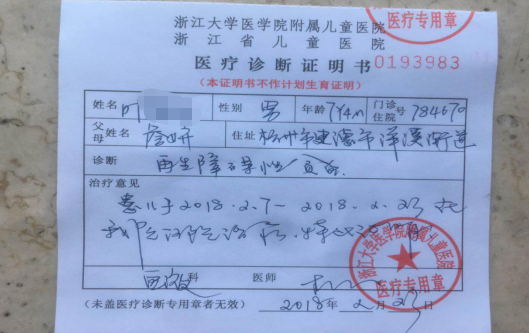 浙江大学医学院附属儿童医院
浙江省儿童医院
医疗专用章
医疗诊断证明书 0193983
（本证明书不作计划生育证明）
姓名 叶 性别 男 年龄 7Y4M 门诊住院号 784670
父母姓名 住址 杭州市建德市洋溪街道
诊断 再生障碍性贫血
治疗意见
患儿于2018.2.7-2018.2.23在
我院住院治疗.特此证明
科 医师
浙江大学医学院附属儿童医院
医疗专用章
（未盖医疗诊断专用章者无效） 2018年2月23日